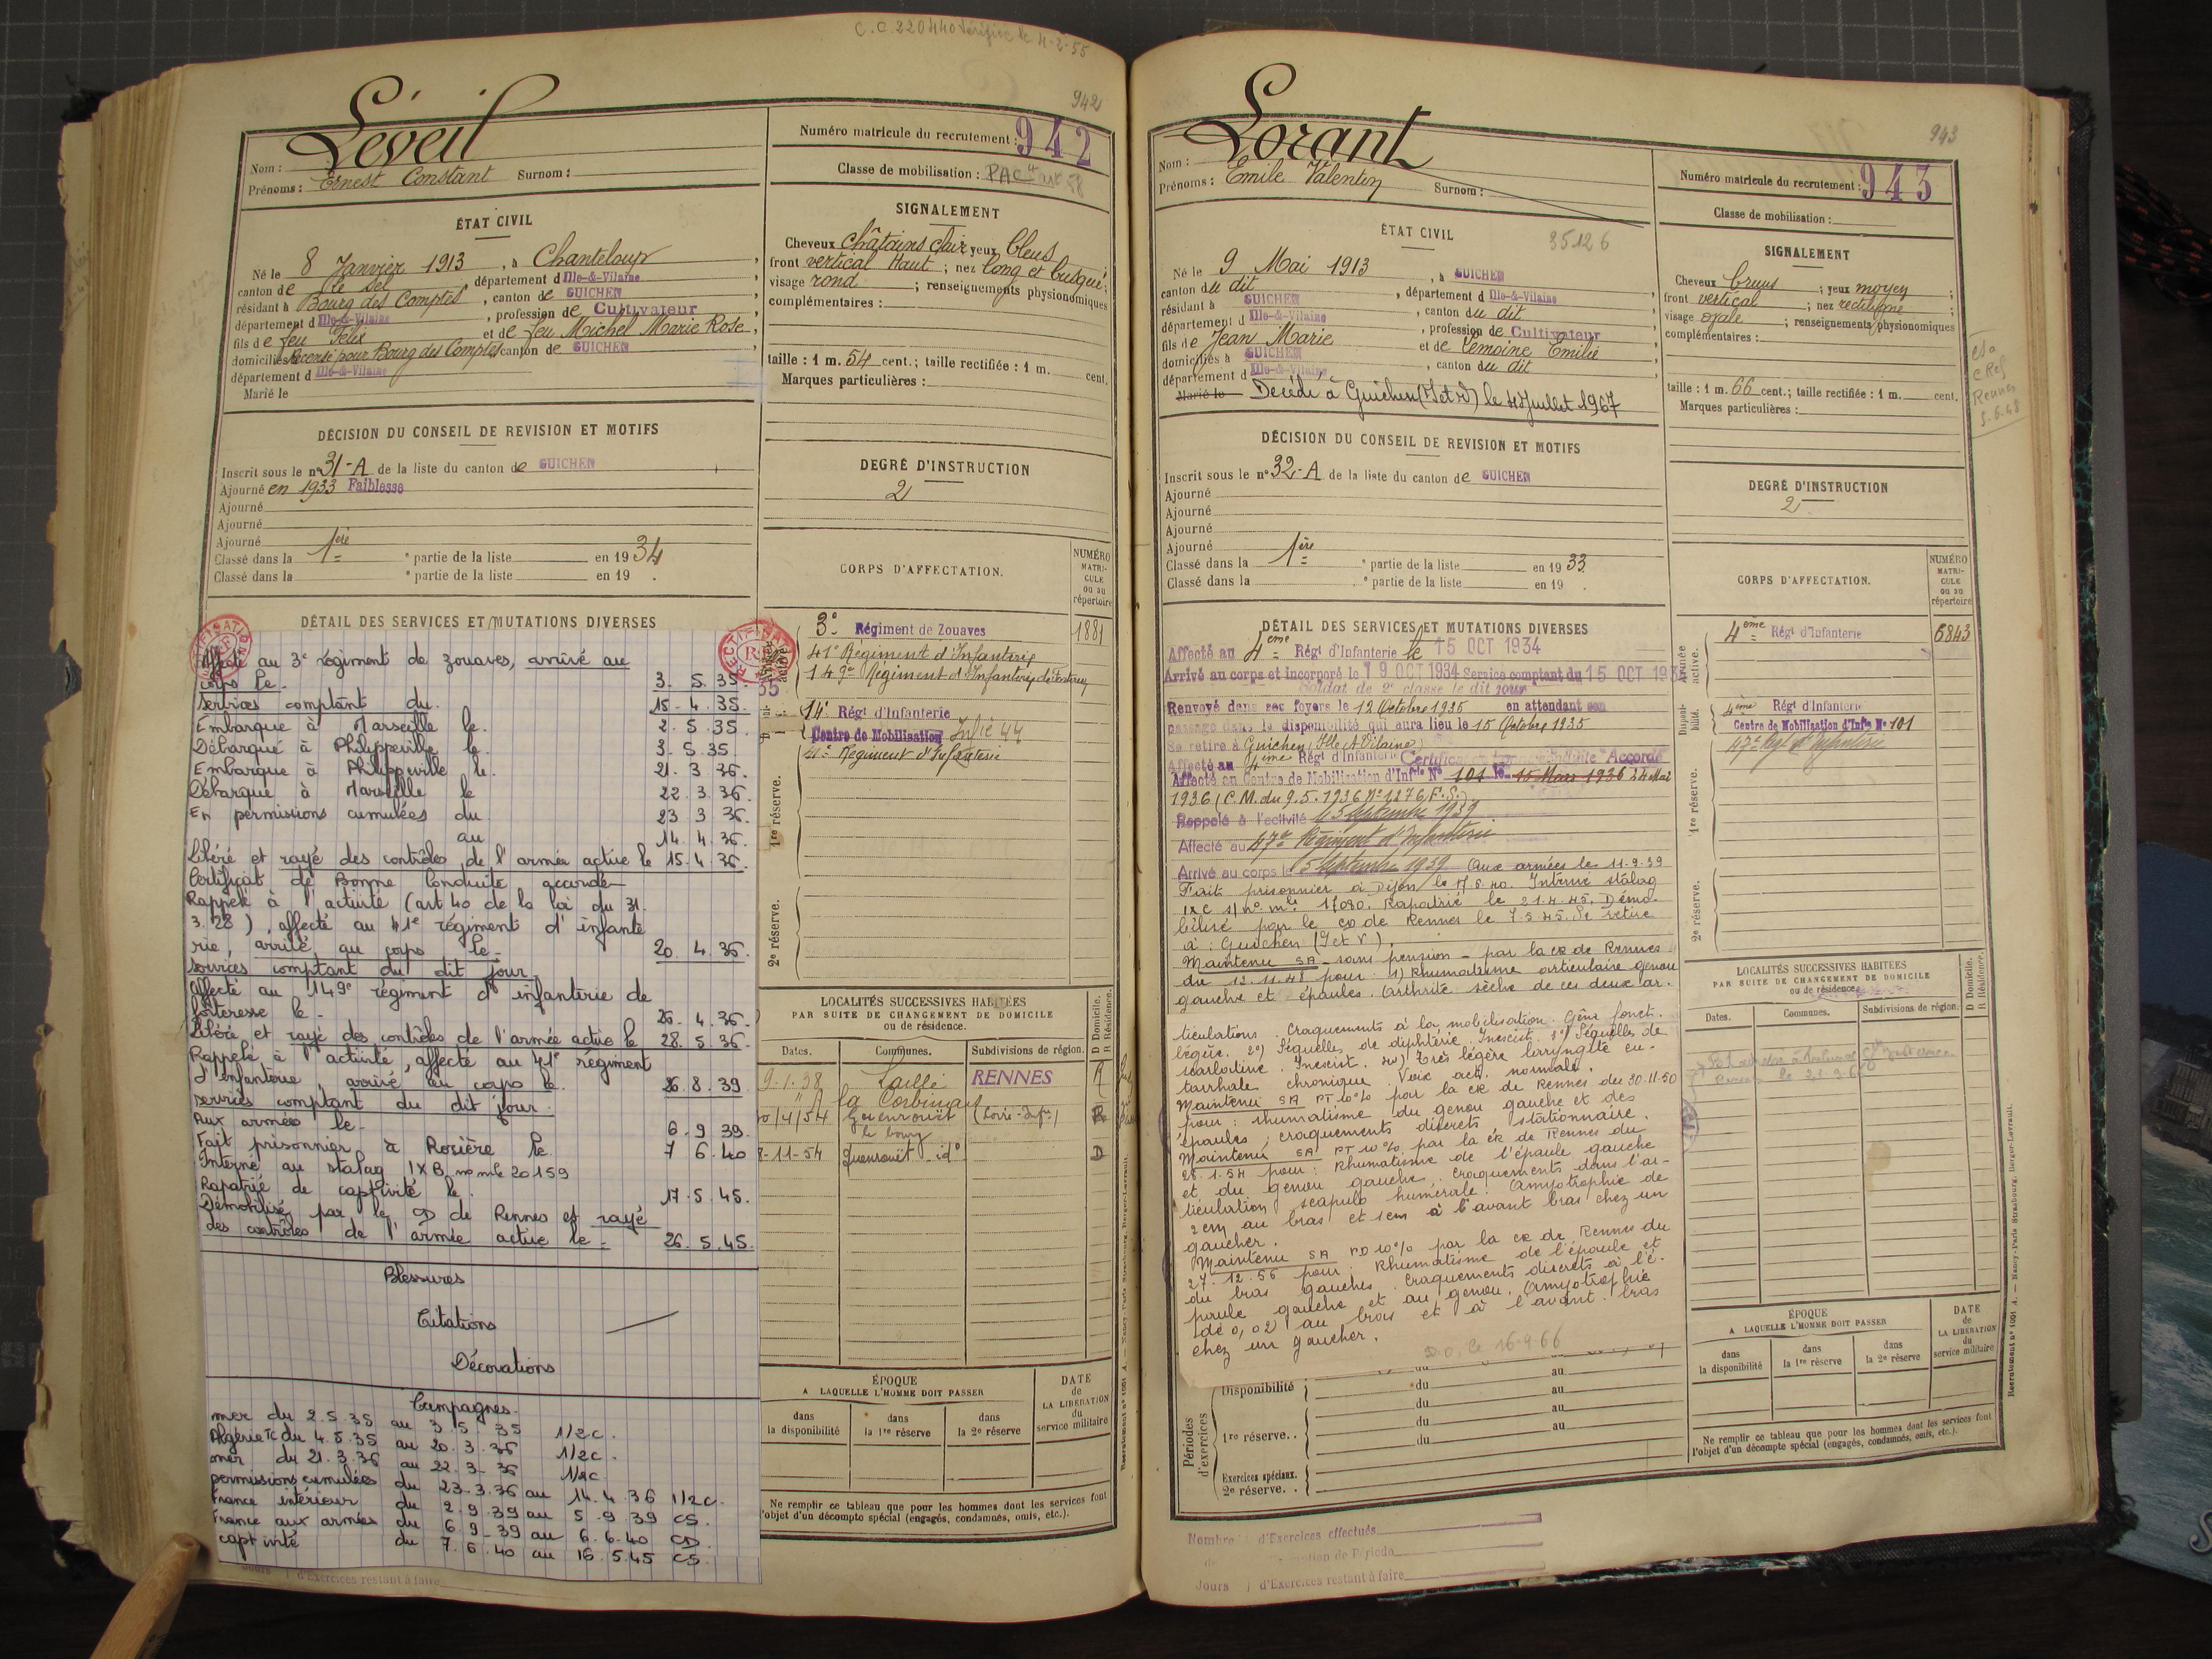 C.C. 220440 Vérifié le 4-2-55
942
Léveil
Nom :
Prénoms : Ernest Constant Surnom :
Numéro matricule du recrutement : 942
Classe de mobilisation :
ÉTAT CIVIL
Né le 8 Janvier 1913, à Chanteloup,
canton de le Sel, département d Ille-&-Vilaine
résidant à Bourg des Comptes, canton de GUICHEN
département d Ille-&-Vilaine, profession de Cultivateur
fils de feu Félix et de feu Michel Marie Rose,
domiciliés Recensé pour Bourg des Comptes canton de GUICHEN
département d Ille-&-Vilaine
Marié le
SIGNALEMENT
Cheveux châtains clair yeux bleus
front vertical Haut ; nez long et busqué ;
visage rond ; renseignements physionomiques
complémentaires :
taille : 1 m. 54 cent.; taille rectifiée : 1 m. cent.
Marques particulières :
DÉCISION DU CONSEIL DE REVISION ET MOTIFS
Inscrit sous le n° 31-A de la liste du canton de GUICHEN
Ajourné en 1933 Faiblesse
Ajourné
Ajourné
Ajourné
Classé dans la 1ère ° partie de la liste en 1934
Classé dans la ° partie de la liste en 19 .
DEGRÉ D'INSTRUCTION
2
CORPS D'AFFECTATION.
NUMÉRO MATRICULE ou au répertoire
3e Régiment de Zouaves 1881
41e Régiment d'Infanterie
149e Régiment d'Infanterie de Forteresse
14e Régt d'Infanterie
Centre de Mobilisation Infie 44
41e Régiment d'Infanterie
1re réserve.
2e réserve.
DÉTAIL DES SERVICES ET MUTATIONS DIVERSES
Affecté au 3e régiment de zouaves, arrivé au
corps le 3.5.35.
services comptant du. 15-4.35.
Embarqué à Marseille le. 2.5.35.
Débarqué à Philippeville le. 3.5.35
Embarqué à Philippeville le. 21.3.36.
Débarqué à Marseille le 22.3.36.
En permissions cumulées du 23.3.36.
au 14.4.36.
Libéré et rayé des contrôles de l'armée active le 15.4.36.
Certificat de Bonne Conduite accordé
Rappelé à l'activité (art 40 de la loi du 31.
3.28), affecté au 41e régiment d'infante
rie, arrivé au corps le. 20.4.36.
services comptant du dit jour.
Affecté au 149e régiment d'infanterie de
forteresse le. 26.4.36.
Libéré et rayé des contrôles de l'armée active le 28.5.36.
Rappelé à l'activité, affecté au 41e régiment
d'infanterie, arrivé au corps le. 26.8.39
services comptant du dit jour.
Aux armées le. 6.9.39.
Fait prisonnier à Rosière le. 7.6.40
Interné au stalag IXB no mle 20159
Rapatrié de captivité le. 17.5.45.
Démobilisé par le CD de Rennes et rayé
des contrôles de l'armée active le. 26.5.45.
Blessures
Citations
Décorations
Campagnes.
mer du 2.5.35 au 3.5.35 1/2c.
Algérie TC du 4.5.35 au 20.3.36 1/2c.
mer du 21.3.36 au 22.3.36 1/2c
permissions cumulées du 23.3.36 au 14.4.36 1/2c.
France intérieur du 2.9.39 au 5.9.39 CS.
France aux armées du 6.9.39 au 6.6.40 CD.
captivité du 7.6.40 au 16.5.45 CS.
Jours d'Exercices restant à faire
LOCALITÉS SUCCESSIVES HABITÉES
PAR SUITE DE CHANGEMENT DE DOMICILE
ou de résidence.
D Domicile. R Résidence.
Dates. Communes. Subdivisions de région.
9-1-38 Laillé RENNES R
la Corbinais
20/4/54 Guenrouët (Loire-Infre) R
le bourg
8-11-54 Guenrouët id° D
ÉPOQUE
A LAQUELLE L'HOMME DOIT PASSER
dans la disponibilité
dans la 1re réserve
dans la 2e réserve
DATE de LA LIBÉRATION du service militaire
Ne remplir ce tableau que pour les hommes dont les services font
l'objet d'un décompte spécial (engagés, condamnés, omis, etc.).
943
Lorant
Nom :
Prénoms : Emile Valentin Surnom :
Numéro matricule du recrutement : 943
Classe de mobilisation :
ÉTAT CIVIL 35126
Né le 9 Mai 1913, à GUICHEN
canton du dit, département d Ille-&-Vilaine
résidant à GUICHEN, canton du dit
département d Ille-&-Vilaine, profession de Cultivateur
fils de Jean Marie et de Lemoine Emilie
domiciliés à GUICHEN, canton du dit
département d Ille-&-Vilaine
Marié le Décédé à Guichen (I et V) le 4 Juillet 1967
SIGNALEMENT
Cheveux bruns ; yeux moyen ;
front vertical ; nez rectiligne ;
visage ovale ; renseignements physionomiques
complémentaires :
taille : 1 m. 66 cent.; taille rectifiée : 1 m. cent.
Marques particulières :
Rennes
5.6.48
DÉCISION DU CONSEIL DE REVISION ET MOTIFS
Inscrit sous le n° 32-A de la liste du canton de GUICHEN
Ajourné
Ajourné
Ajourné
Ajourné
Classé dans la 1ère ° partie de la liste en 1933
Classé dans la ° partie de la liste en 19 .
DEGRÉ D'INSTRUCTION
2
CORPS D'AFFECTATION.
NUMÉRO MATRICULE ou au répertoire
Armée active.
4eme Régt d'Infanterie 6843
Disponibilité.
4eme Régt d'Infanterie
Centre de Mobilisation d'Infie N° 101
47e Régt d'Infanterie
1re réserve.
2e réserve.
DÉTAIL DES SERVICES ET MUTATIONS DIVERSES
Affecté au 4eme Régt d'Infanterie le 15 OCT 1934
Arrivé au corps et incorporé le 19 OCT 1934 Service comptant du 15 OCT 1934
Soldat de 2e classe le dit jour
Renvoyé dans ses foyers le 12 Octobre 1935 en attendant son
passage dans la disponibilité qui aura lieu le 15 Octobre 1935
Se retire à Guichen (Ille et Vilaine)
Affecté au 4eme Régt d'Infanterie Certificat de Bonne Conduite Accordé
Affecté au Centre de Mobilisation d'Infie N° 101 le 15 Mars 1936 24 Mai
1936 (C.M. du 9.5.1936 N° 1276 F.S.)
Rappelé à l'activité 5 Septembre 1939
Affecté au 47e Régiment d'Infanterie
Arrivé au corps le 5 Septembre 1939 Aux armées le 11-9-39
Fait prisonnier à Dijon le 17.6.40. Interné stalag
IX C s/ no mle 17090. Rapatrié le 21.4.45. Démo-
bilisé par le CD de Rennes le 7.5.45. Se retire
à : Guichen (I et V).
Maintenu SA sans pension - par la CR de Rennes
du 12.11.48 pour : 1) Rhumatisme articulaire genou
gauche et épaules. Arthrite sèche de ces deux ar-
ticulations. Craquements à la mobilisation. Gêne fonct.
légère. 2°) Séquelles de diphtérie. Inexist. 3°) Séquelles de
scarlatine. Inexist. 4°) Très légère laryngite ca-
tarrhale chronique Voix act. normale.
Maintenu SA PT 10% par la CR de Rennes du 30-11-50
pour : rhumatisme du genou gauche et des
épaules ; craquements discrets stationnaire.
Maintenu SA PT 10% par la CR de Rennes du
28.1.54 pour : Rhumatisme de l'épaule gauche
et du genou gauche, craquements dans l'ar-
ticulation scapulo humérale. Amyotrophie de
2cm au bras et 1cm à l'avant bras chez un
gaucher.
Maintenu SA PD 10% par la CR de Rennes du
27.12.56 pour : Rhumatisme de l'épaule et
du bras gauches. Craquements discrets à l'é-
paule gauche et au genou. Amyotrophie
de 0,02 au bras et à l'avant-bras
chez un gaucher.
D.O. le 16-9-66
Périodes d'exercices
Disponibilité du au
du au
1re réserve. . du au
du au
Exercices spéciaux.
2e réserve. .
Nombre d'Exercices effectués
de
Jours d'Exercices restant à faire
LOCALITÉS SUCCESSIVES HABITÉES
PAR SUITE DE CHANGEMENT DE DOMICILE
ou de résidence.
D Domicile. R Résidence.
Dates. Communes. Subdivisions de région.
ÉPOQUE
A LAQUELLE L'HOMME DOIT PASSER
dans la disponibilité
dans la 1re réserve
dans la 2e réserve
DATE de LA LIBÉRATION du service militaire
Ne remplir ce tableau que pour les hommes dont les services font
l'objet d'un décompte spécial (engagés, condamnés, omis, etc.).
Recrutement n° 1001 A. — Nancy-Paris Strasbourg. Berger-Levrault.